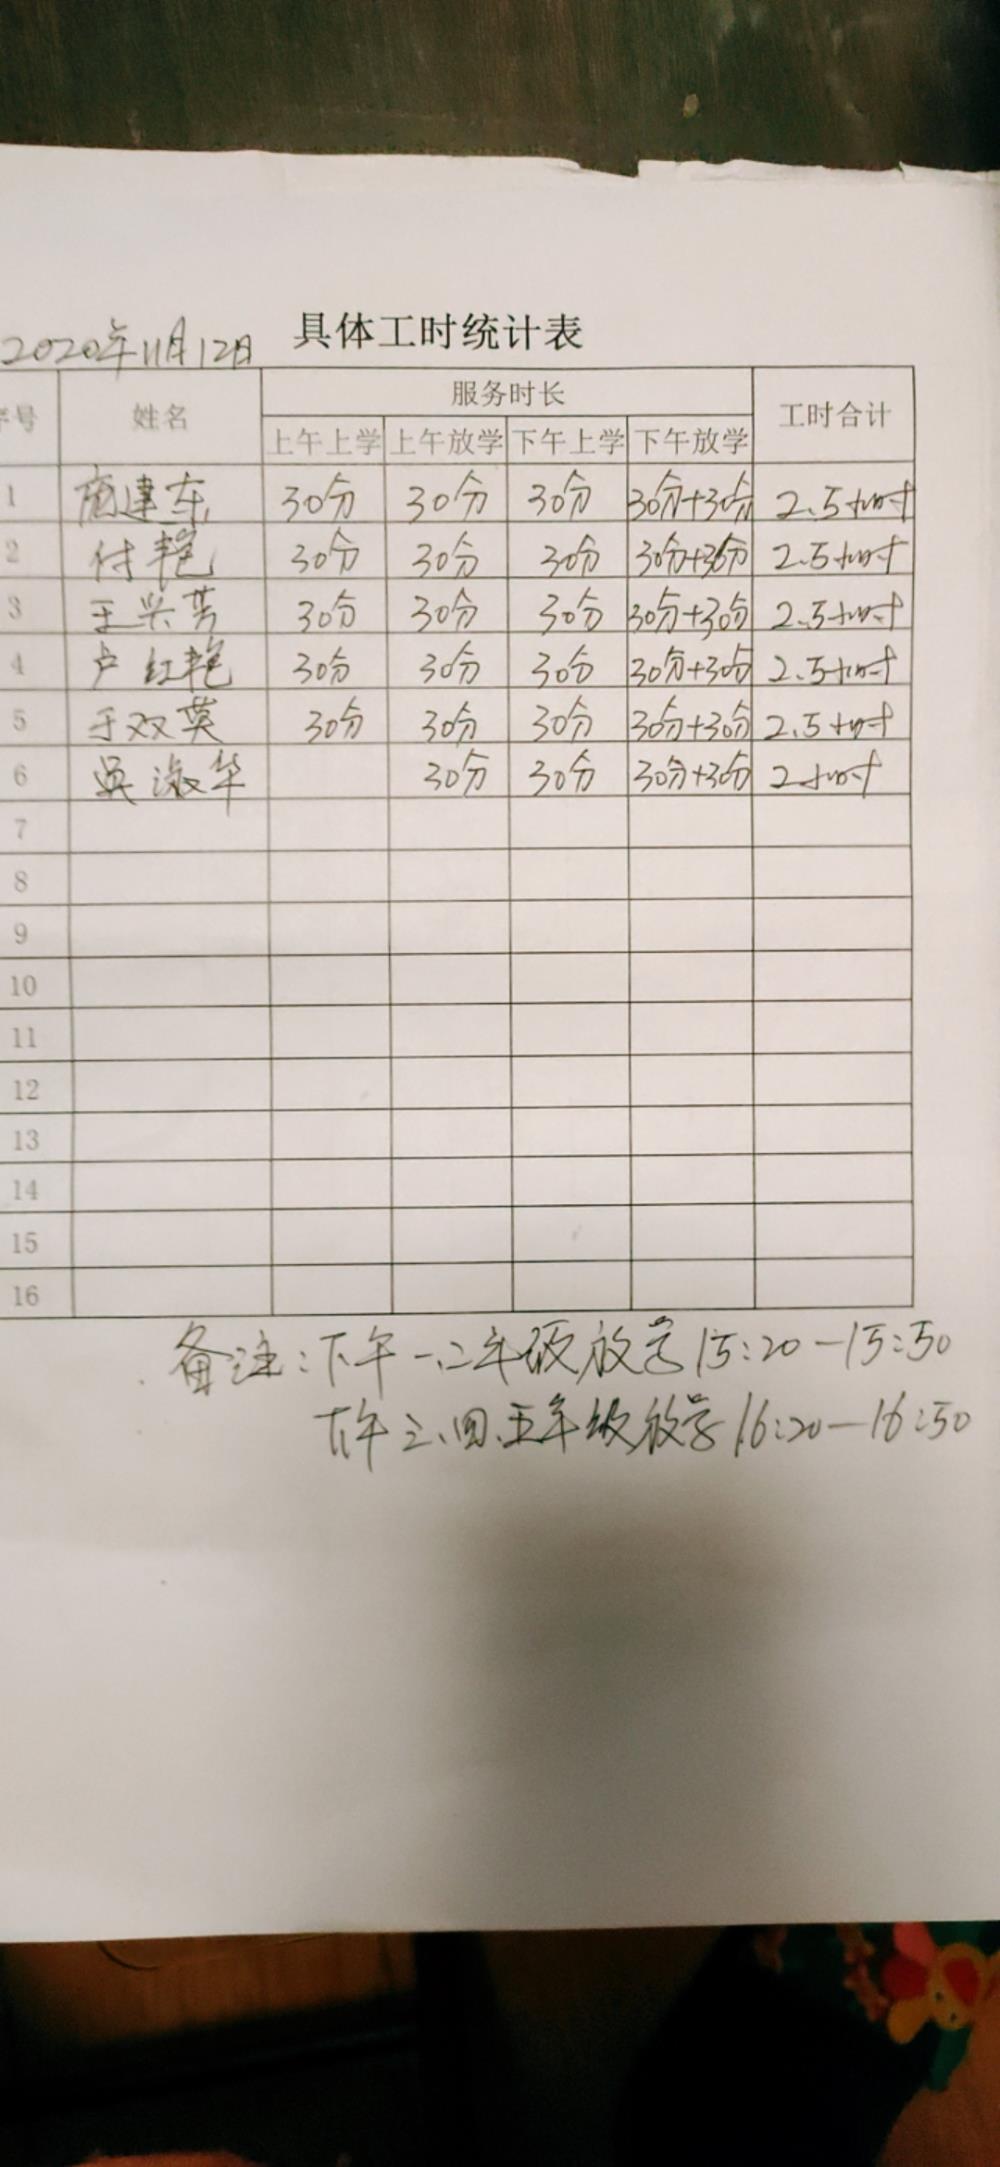 2020年11月12日 具体工时统计表
序号 姓名 服务时长 工时合计
上午上学 上午放学 下午上学 下午放学
1 建东 30分 30分 30分 30分+30分 2.5小时
2 付艳 30分 30分 30分 30分+30分 2.5小时
3 王兴芳 30分 30分 30分 30分+30分 2.5小时
4 卢红艳 30分 30分 30分 30分+30分 2.5小时
5 于双英 30分 30分 30分 30分+30分 2.5小时
6 吴淑华 30分 30分 30分+30分 2小时
7
8
9
10
11
12
13
14
15
16
备注:下午一、二年级放学15:20—15:50
下午三、四、五年级放学16:20—16:50